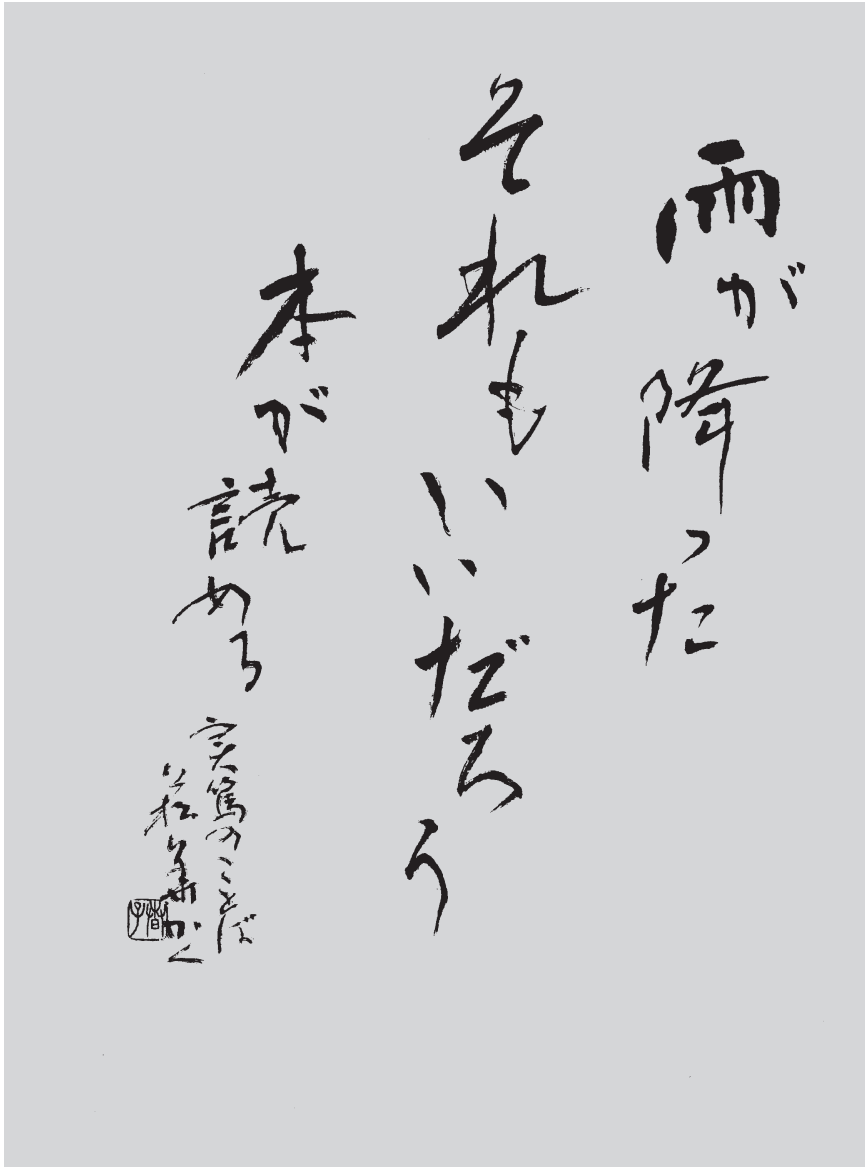 雨が降った
それもいいだろう
本が読める
実篤のことば
華かく